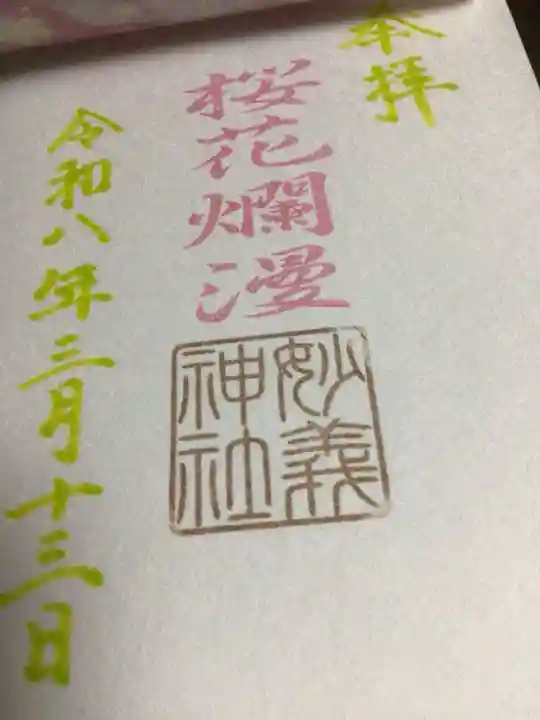 奉拝
桜花爛漫
妙義
神社
令和八年三月十三日